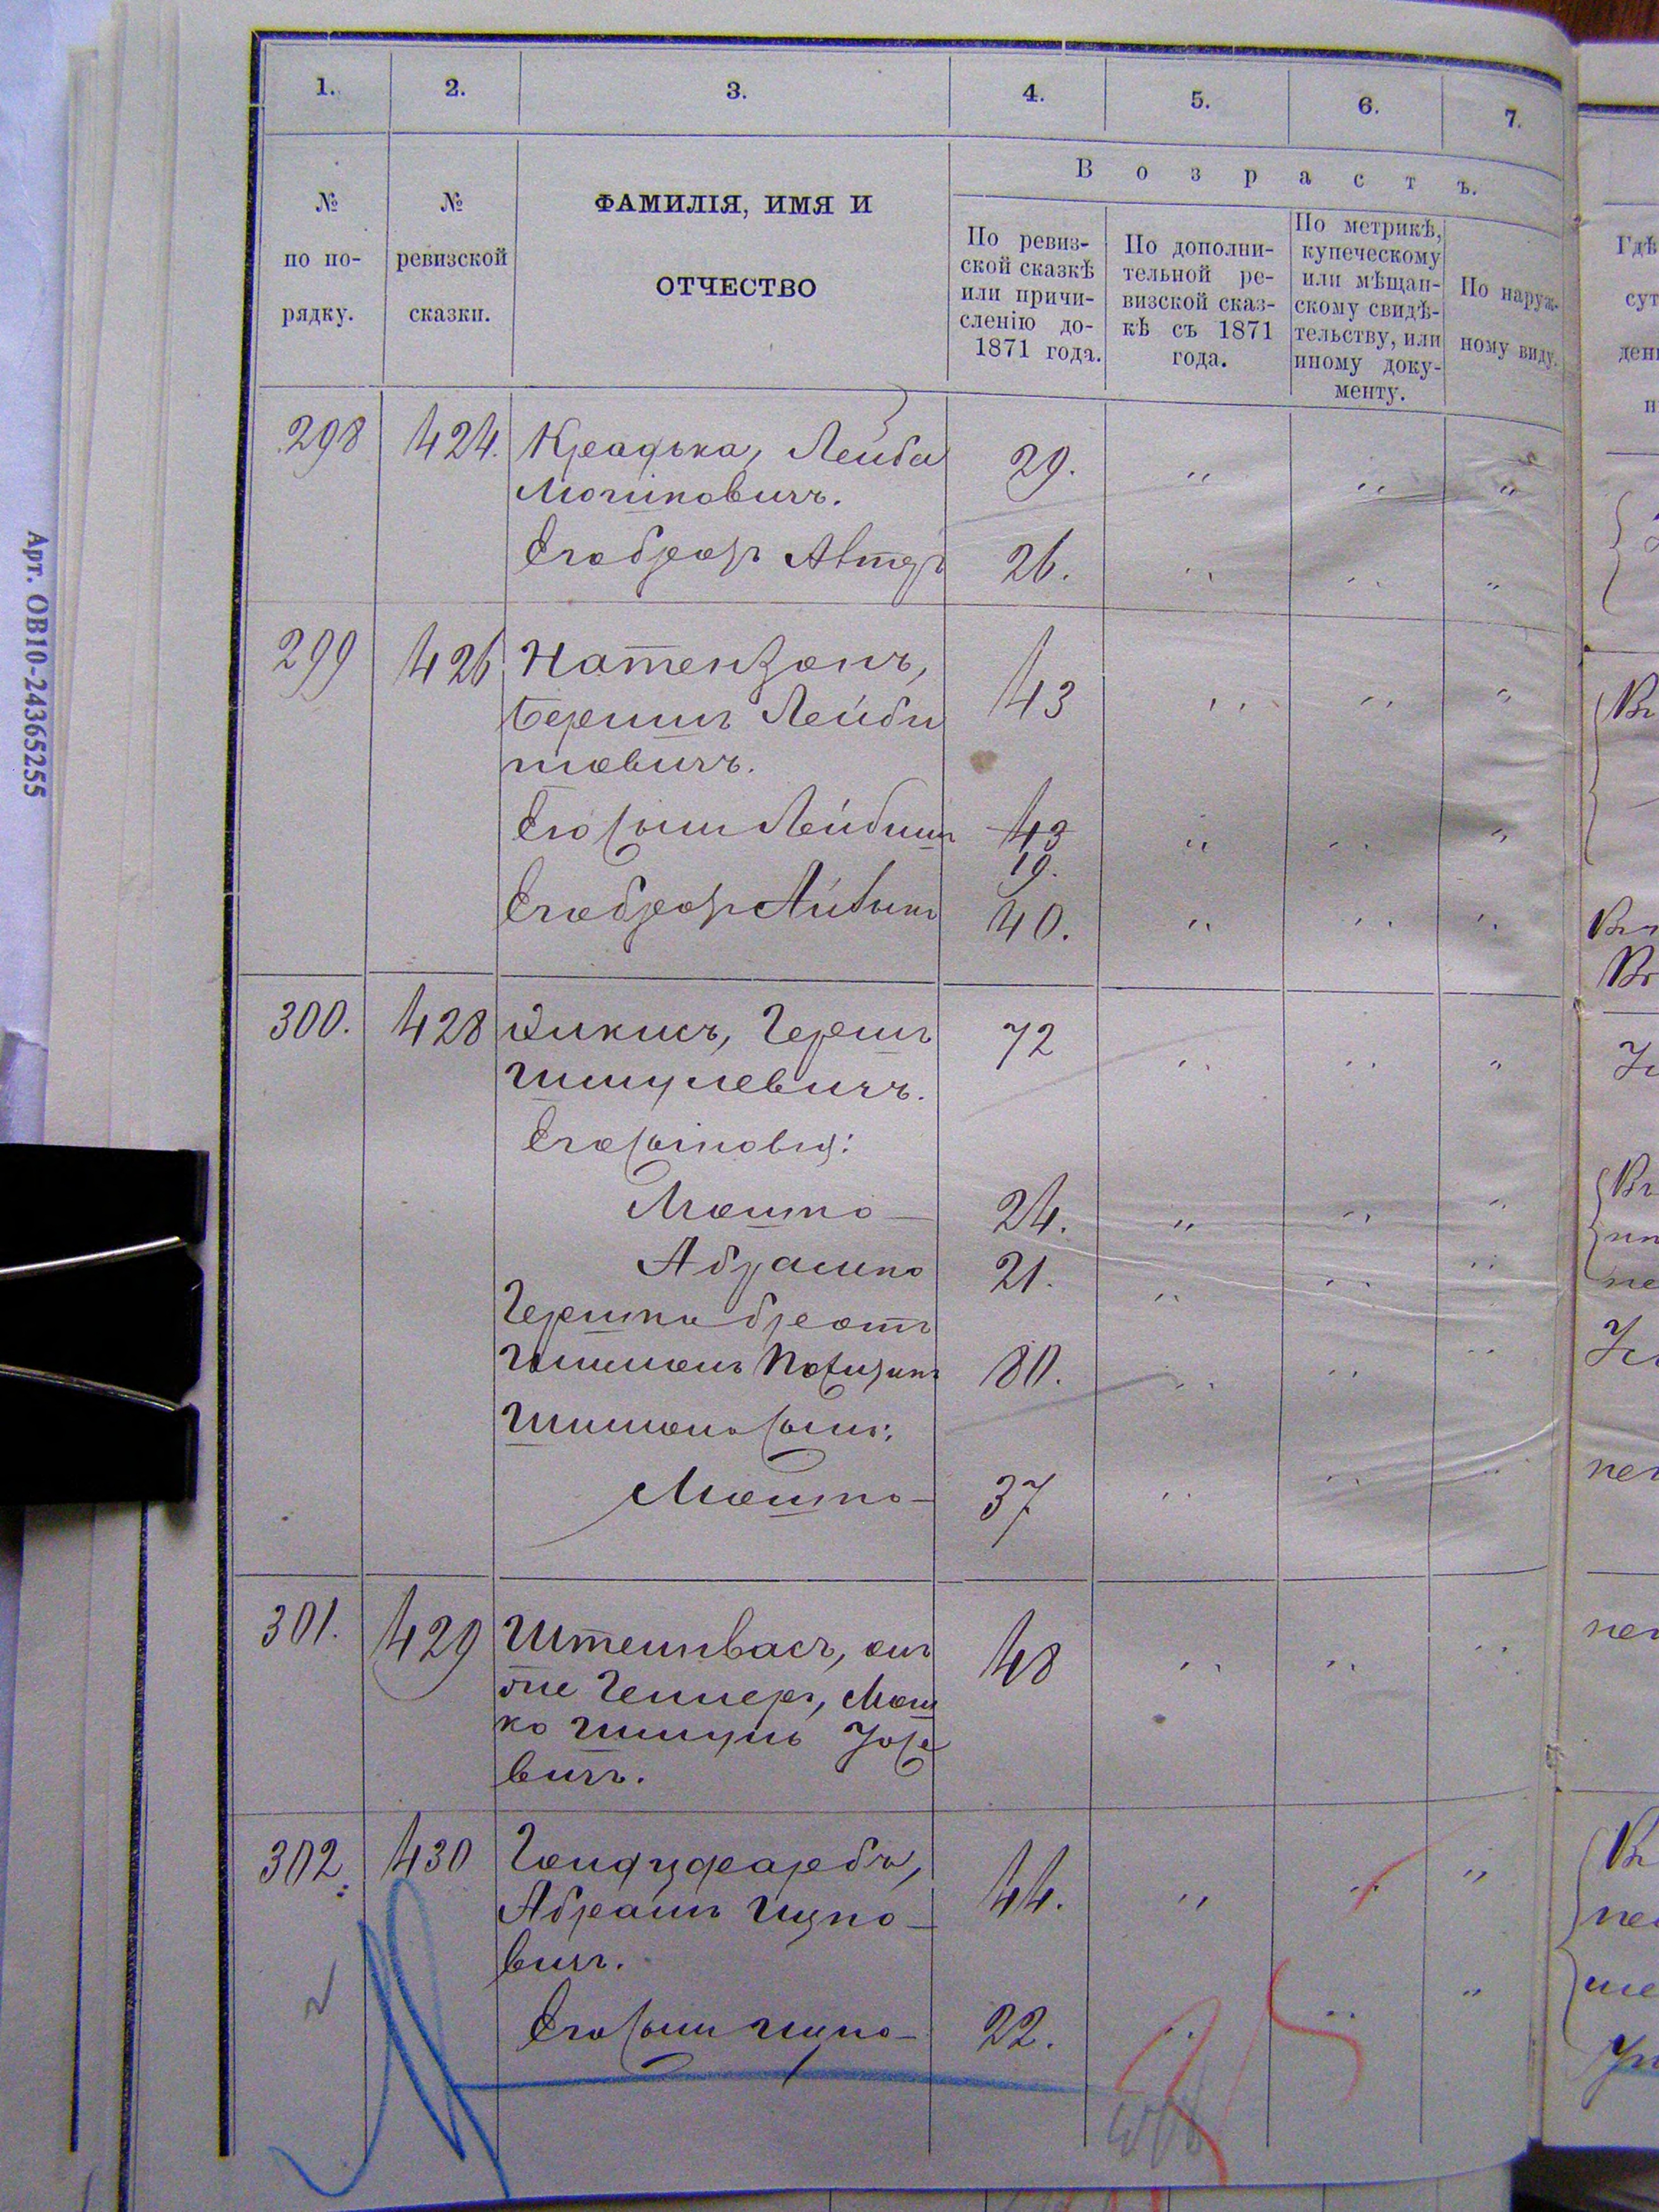 1.
2.
3.
4.
5.
6.
7.
№
по по-
рядку.
№
ревизской
сказки.
ФАМИЛІЯ, ИМЯ И
ОТЧЕСТВО
Возрастъ.
По ревиз-
ской сказкѣ
или причи-
сленію до-
1871 года.
По дополни-
тельной ре-
визской сказ-
кѣ съ 1871
года.
По метрикѣ,
купеческому
или мѣщан-
скому свидѣ-
тельству, или
иному доку-
менту.
По наруж-
ному виду.
298 424. Лейба 29. " " "
Мошковичъ.
Его братъ 26. " " "
299 426 Натензонъ, 43 " " "
Беришъ Лейби
шовичъ.
Его сынъ Лейбишъ 43 " " "
19.
Его братъ Айзыкъ 40. " " "
300. 428 Гершъ 72 " " "
Шмулевичъ.
Его сыновья:
Мошко 24. " " "
Абрамко 21. " " "
Гершка братъ
Шимонъ 80. " " "
Шимона сынъ:
Мошко 37 " " "
301. 429 Штейнвасъ, онъ 48 " " "
же Геллеръ, Мош
ко Шмуль Іосе
вичъ.
302. 430 Гольдфарбъ, 44. " " "
Абрамъ Ицко-
вичъ.
Его сынъ Ицко 22. " " "
Гдѣ
Арт. ОВ10-24365255